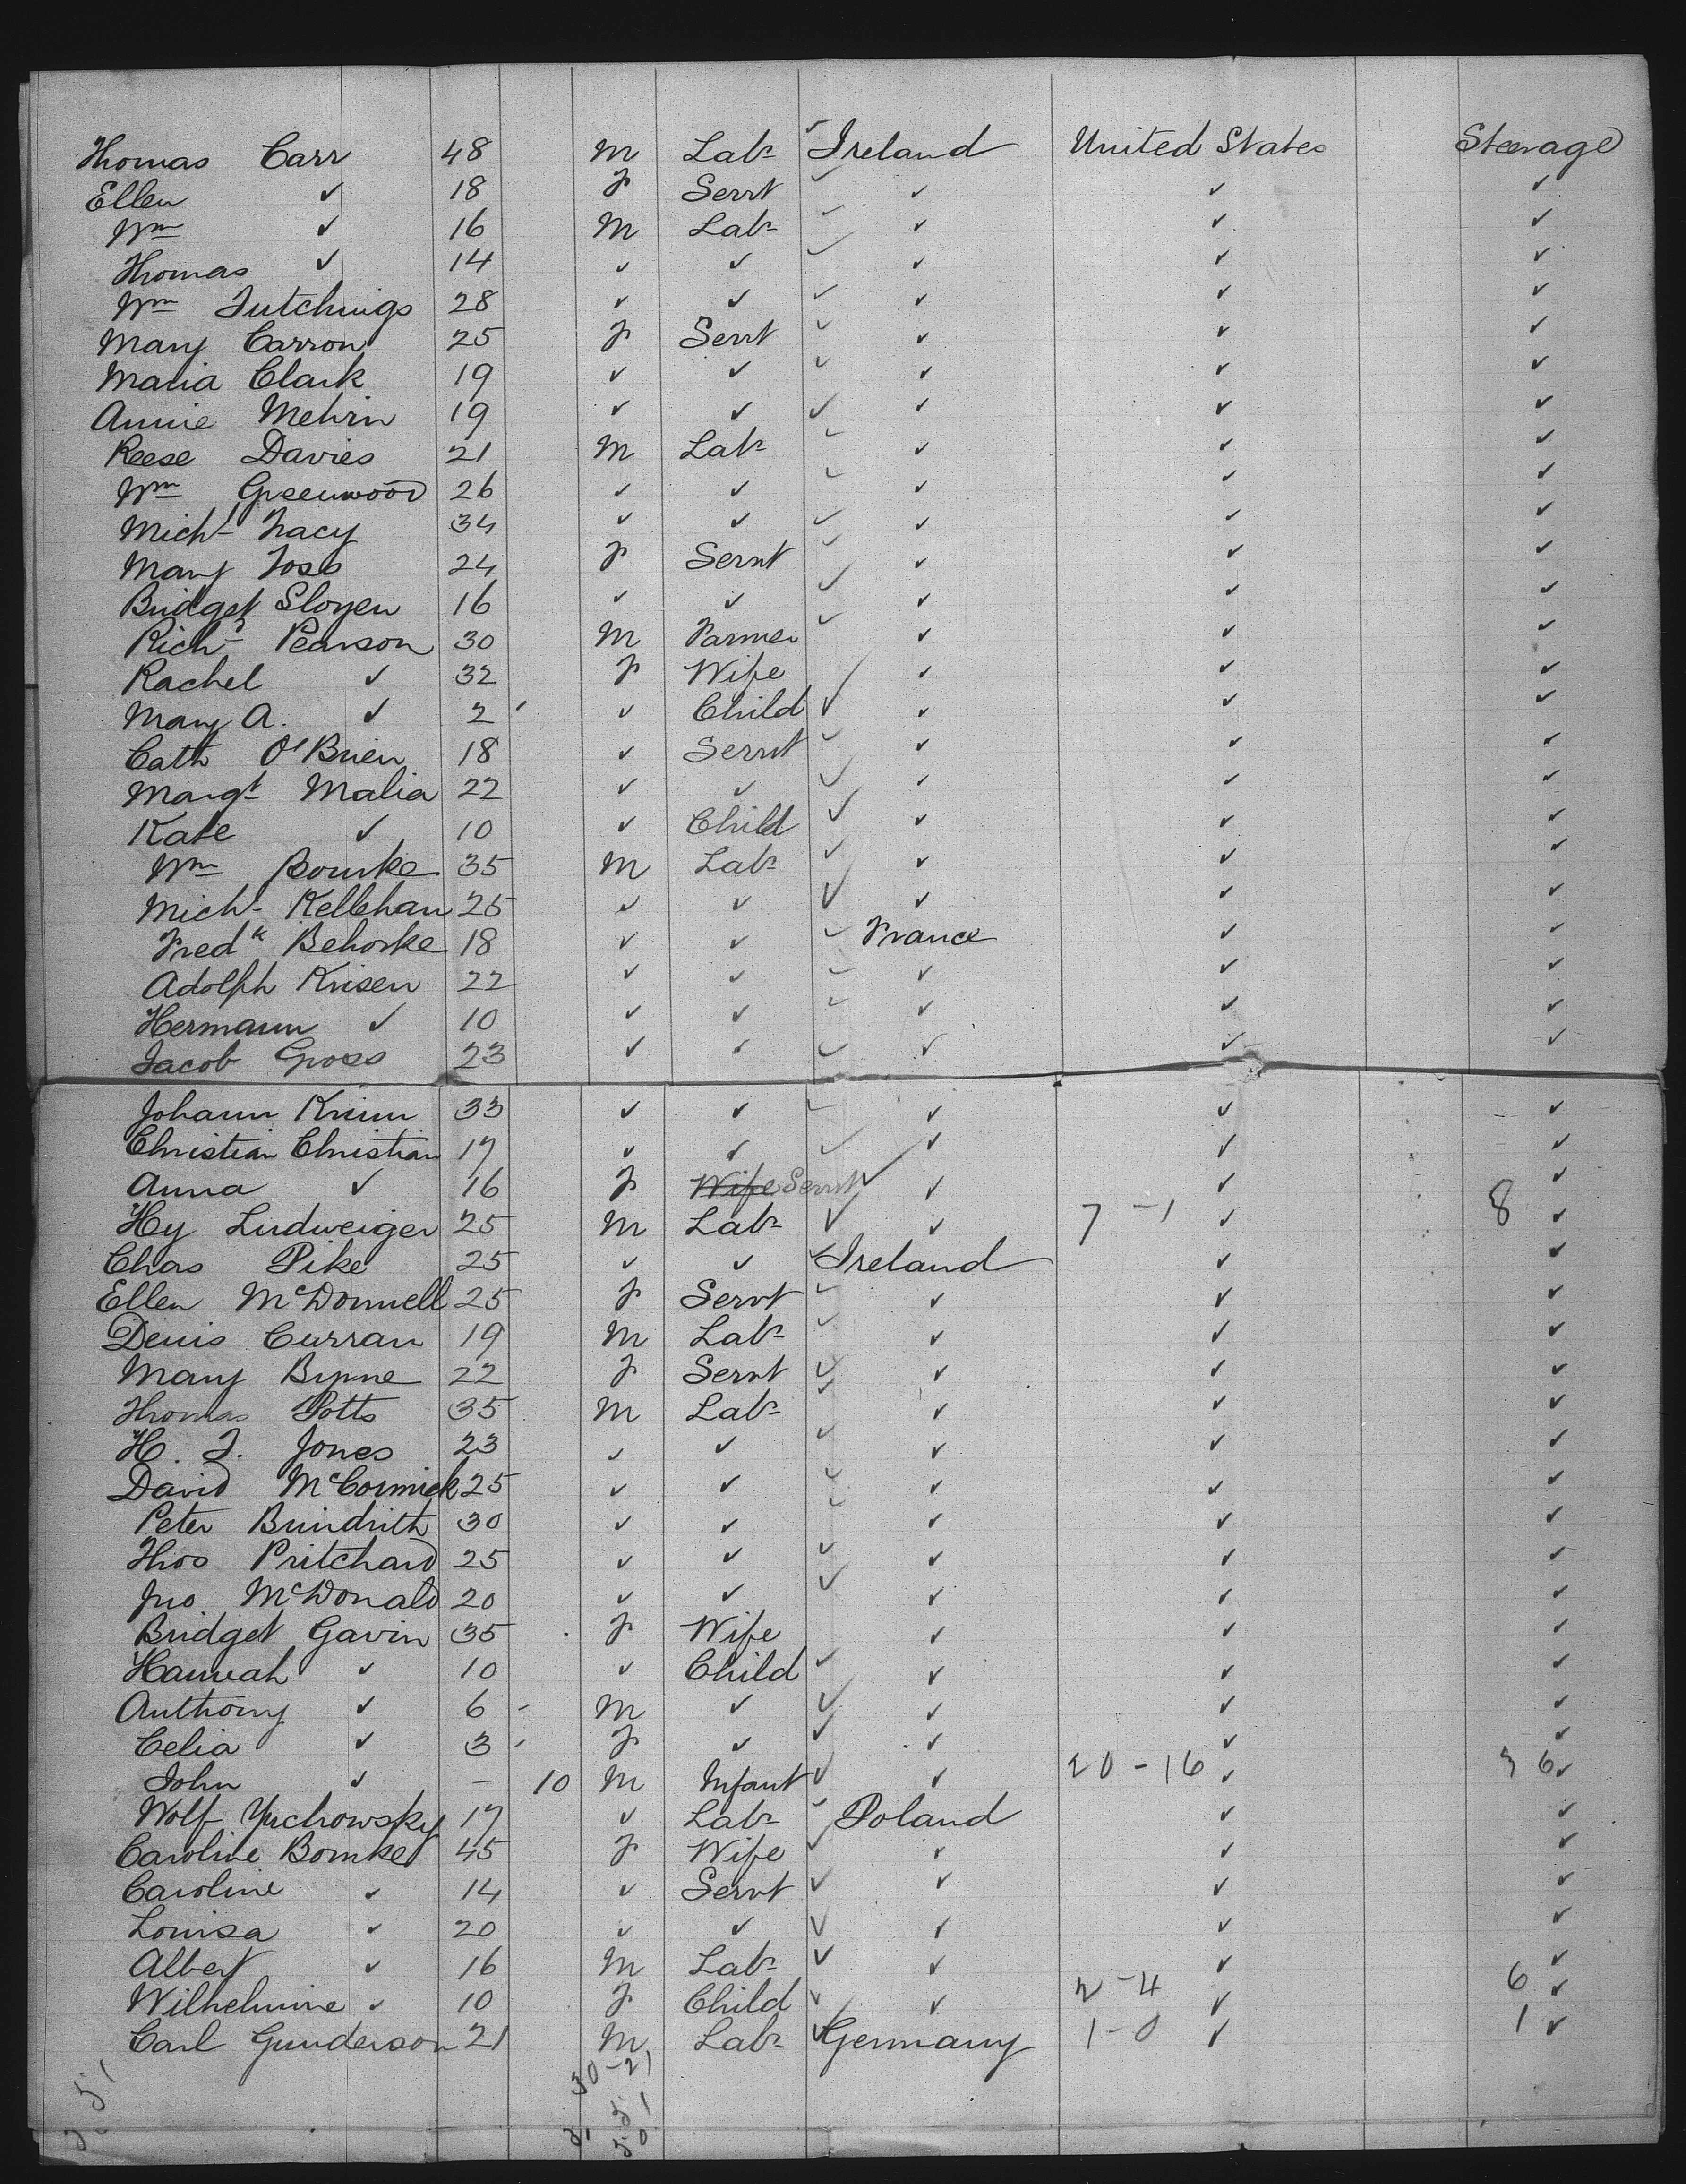 Thomas Carr 48 M Labr Ireland United States Steerage
Ellen ✓ 18 F Servt ✓ ✓ ✓ ✓
Wm ✓ 16 M Labr ✓ ✓ ✓ ✓
Thomas ✓ 14 ✓ ✓ ✓ ✓ ✓ ✓
Wm 28 ✓ ✓ ✓ ✓ ✓ ✓
Mary Carron 25 F Servt ✓ ✓ ✓ ✓
Maria Clark 19 ✓ ✓ ✓ ✓ ✓ ✓
Annie 19 ✓ ✓ ✓ ✓ ✓ ✓
Reese Davies 21 M Labr ✓ ✓ ✓ ✓
Wm Greenwood 26 ✓ ✓ ✓ ✓ ✓ ✓
Michl 34 ✓ ✓ ✓ ✓ ✓ ✓
Mary 24 F Servt ✓ ✓ ✓ ✓
Bridget Sloyen 16 ✓ ✓ ✓ ✓ ✓ ✓
Richd Pearson 30 M Farmer ✓ ✓ ✓ ✓
Rachel ✓ 32 F Wife ✓ ✓ ✓ ✓
Mary A. ✓ 2 ✓ Child ✓ ✓ ✓ ✓
Cath O'Brien 18 ✓ Servt ✓ ✓ ✓ ✓
Margt Malia 22 ✓ ✓ ✓ ✓ ✓ ✓
Kate ✓ 10 ✓ Child ✓ ✓ ✓ ✓
Wm Bourke 35 M Labr ✓ ✓ ✓ ✓
Michl Kellehan 25 ✓ ✓ ✓ ✓ ✓ ✓
Fredk Behorke 18 ✓ ✓ ✓ France ✓ ✓
Adolph Krisen 22 ✓ ✓ ✓ ✓ ✓ ✓
Hermann ✓ 10 ✓ ✓ ✓ ✓ ✓ ✓
Jacob Gross 23 ✓ ✓ ✓ ✓ ✓ ✓
Johann 33 ✓ ✓ ✓ ✓ ✓ ✓
Christian Christian 17 ✓ ✓ ✓ ✓ ✓ ✓
Anna ✓ 16 F Wife Servt ✓ ✓ ✓ ✓
Hy Ludweiger 25 M Labr ✓ ✓ 7 - 1 ✓ 8 ✓
Chas Pike 25 ✓ ✓ ✓ Ireland ✓ ✓
Ellen McDonnell 25 F Servt ✓ ✓ ✓ ✓
Denis Curran 19 M Labr ✓ ✓ ✓ ✓
Mary Byrne 22 F Servt ✓ ✓ ✓ ✓
Thomas Potts 35 M Labr ✓ ✓ ✓ ✓
H. J. Jones 23 ✓ ✓ ✓ ✓ ✓ ✓
David McCormick 25 ✓ ✓ ✓ ✓ ✓ ✓
Peter Brindrith 30 ✓ ✓ ✓ ✓ ✓ ✓
Thos Pritchard 25 ✓ ✓ ✓ ✓ ✓ ✓
Jno. McDonald 20 ✓ ✓ ✓ ✓ ✓ ✓
Bridget Gavin 35 F Wife ✓ ✓ ✓
Hannah ✓ 10 ✓ Child ✓ ✓ ✓ ✓
Anthony ✓ 6 M ✓ ✓ ✓ ✓ ✓
Celia ✓ 3 F ✓ ✓ ✓ ✓ ✓
John ✓ - 10 M Infant ✓ ✓ 20 - 16 ✓ 36 ✓
Wolf Yuchowsky 17 ✓ Labr ✓ Poland ✓ ✓
Caroline Bomke 45 F Wife ✓ ✓ ✓ ✓
Caroline ✓ 14 ✓ Servt ✓ ✓ ✓ ✓
Louisa ✓ 20 ✓ ✓ ✓ ✓ ✓ ✓
Albert ✓ 16 M Labr ✓ ✓ ✓ ✓
Wilhelmine ✓ 10 F Child ✓ ✓ 2 - 4 ✓ 6 ✓
Carl Gunderson 21 M Labr ✓ Germany 1 - 0 ✓ 1 ✓
30 - 21
51